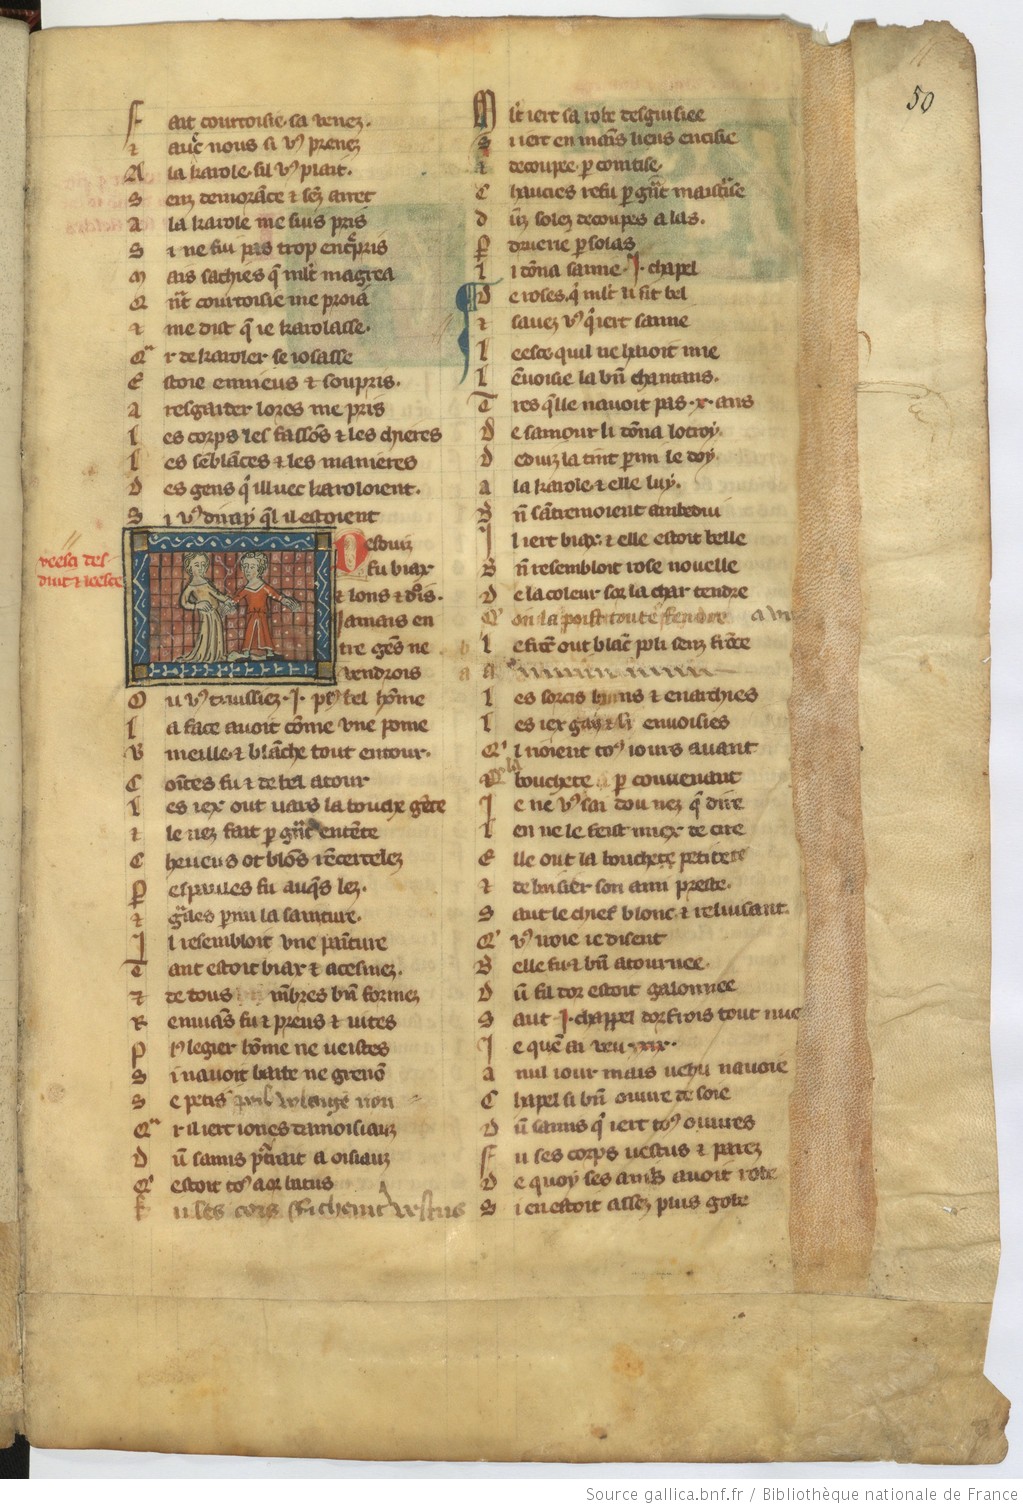 50
Fait courtoisie ca venez.
⁊ auec nous si vꝰ prenez
A la karole sil vꝰ plait.
Senz demorāce ⁊ sēz arret
A la karole me suis pris
S ⁊ ne fui pas trop
Mais sachies q̄ mlt magrea
Qnt courtoisie me proia
⁊ me dist q̄ ie karolasse.
Qr de karoler se iosasse
Estoie enuieus ⁊ soupris.
A resgarder lores me pris
Les corps les fassōs ⁊ les chieres
Les sēblāces ⁊ les manieres
Des gens q̄ illuec karoloient.
Si vꝰ diray q̄l il estoient
Desduiz
fu biax
⁊ lons ⁊
Jamais en
tre gēs ne
vendrois
Ou vꝰ truissiez .I. pꝰ bel hōme
La face auoit cōme vne pome
Vmeille ⁊ blāche tout entour.
Cointes fu ⁊ de bel atour
Les iex out vairs la bouche gēte
⁊ le nez fait p gnt entēte
Cheueus ot blōs rēcercelez
Pespaules fu auq̄s lez.
⁊ gͣiles pmi la sainture.
Il resembloit vne painture
Tant estoit biax ⁊ acesmez.
⁊ de tous mēbres bn̄ formez
Remuās fu ⁊ preus ⁊ uites
Pꝰ legier hōme ne veistes
Si nauoit barbe ne grenō
Se petis non
Qr il iert iones damoisiauz
Dū samis ptrait a oisiauz
Qͥ estoit toꝰ a or batus
Fu ses cors richemt vestus
Mlt iert sa robe desguisiee
Si iert en mais liens encisie
⁊ decoupee p cointise.
Chaucies refu p gnt maistͥse
Dūz solez decoupes a las.
P druerie p solas
Li dōna samie .I. chapel
De roses q̄ mlt li sit bel
⁊ sauez vꝰ q̄ iert samie
Leesce quil ne haioit mie
Lēuoisie la bn̄ chantans.
Tres q̄lle nauoit pas .x. ans
De samour li dōna lotroy.
Deduiz la tint pmi le doy.
A la karole ⁊ elle luy.
Bn̄ sātremoient ambedui
Il iert biax ⁊ elle estoit belle
Bn̄ resembloit rose nouelle
De la coleur sor la char tendre
Qͥ on la poist toute fendre
Le front out blāc poli senz frōce
Les sorcis bruns ⁊ enarchies
Les iex gays ⁊ si enuoisies
Qͥl rioient toꝰ iours auant
bouchete p conuenant
Ie ne vꝰ sai dou nez q̄ dire
Len ne le feist miex de cire
Elle out la bouchete petitete
⁊ de baisier son ami preste.
Saut le chief blonc ⁊ reluisant.
Qͥ vꝰ iroie ie disent
Belle fu ⁊ bn̄ atournee.
Dū fil dor estoit galonnee
Saut .I. chappel dorfrois tout nue
Ie quē ai veu .xxix.
A nul iour mais uehu nauoie
Chapel si bn̄ ouure de soie
Dū samis q̄ iert toꝰ ouures
Fu ses corps vestus ⁊ parez
De quoy ses amis auoit robe
Si en estoit assez plus gobe
Source gallica.bnf.fr / Bibliothèque nationale de France